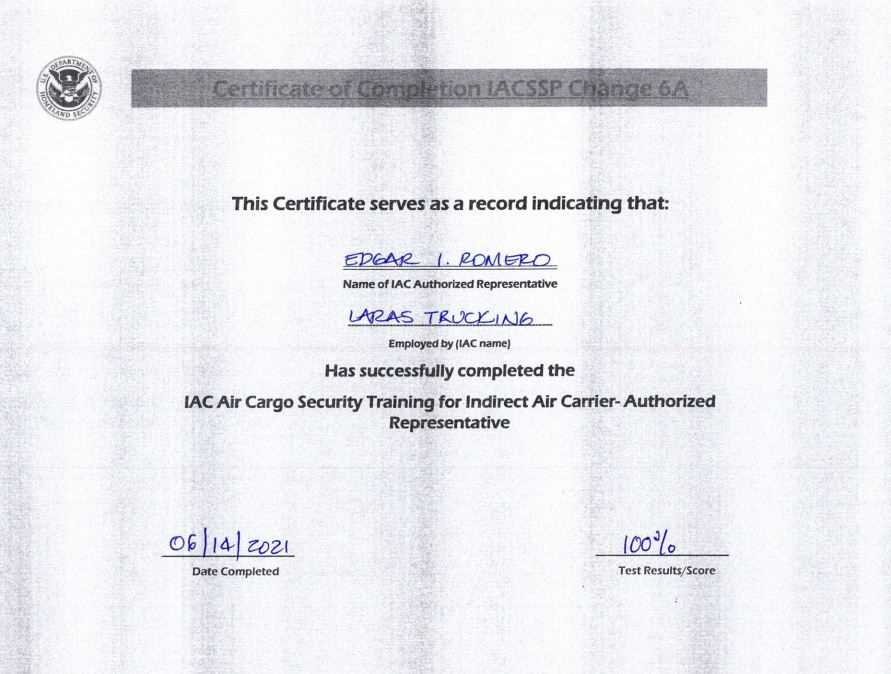 U.S. DEPARTMENT OF HOMELAND SECURITY
Certificate of Completion IACSSP Change 6A
This Certificate serves as a record indicating that:
EDGAR I. ROMERO
Name of IAC Authorized Representative
LARAS TRUCKING
Employed by (IAC name)
Has successfully completed the
IAC Air Cargo Security Training for Indirect Air Carrier- Authorized
Representative
06/14/2021
100%
Date Completed
Test Results/Score